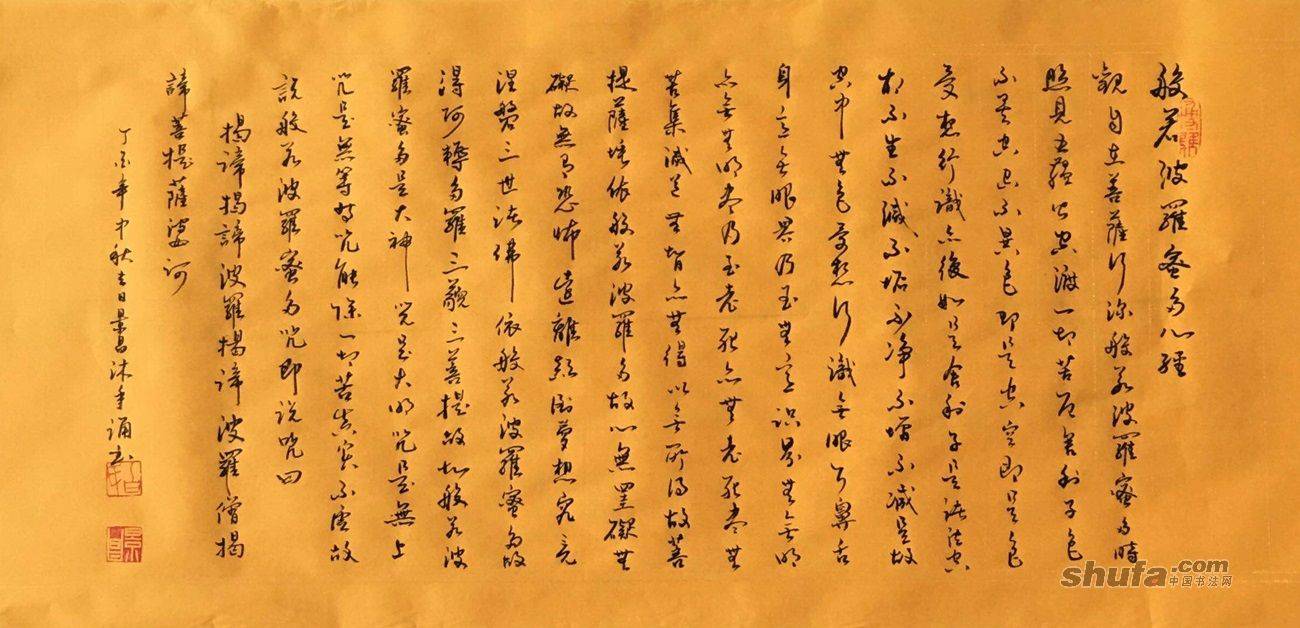 般若波羅蜜多心經
觀自在菩薩行深般若波羅蜜多時
照見五蘊皆空渡一切苦厄舍利子色
不異空空不異色即是空空即是色
受想行識亦復如是舍利子是諸法空
相不生不滅不垢不淨不增不減是故
空中無色受想行識無眼耳鼻舌
身意無眼界乃至無意識界無無明
亦無無明盡乃至老死亦無老死盡無
苦集滅道無智亦無得以無所得故菩
提薩埵依般若波羅多故心無罣礙無
礙故無有恐怖遠離顛倒夢想究竟
涅槃三世諸佛依般若波羅蜜多故
得阿耨多羅三藐三菩提故知般若波
羅蜜多是大神咒是大明咒是無上
咒是無等等咒能除一切苦真實不虛故
說般若波羅蜜多咒即說咒曰
揭諦揭諦波羅揭諦波羅僧揭
諦菩提薩婆訶
丁酉年中秋吉日景昌沐手誦書
景昌
shufa.com
中国书法网